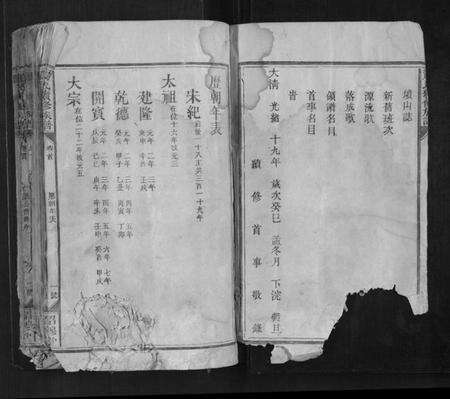 墳山誌
新舊班次
源流歌
落成歌
領譜名目
首事名目
昔
大清 光緒 十九年 歲次癸巳 孟冬月 下浣 穀旦
續修首事敬錄
歷朝年表
宋紀
太祖 在位十六年改元三
建隆 元年 二年 三年
庚申 辛酉 壬戌
乾德 元年 二年 三年 四年 五年
癸亥 甲子 乙丑 丙寅 丁卯
開寶 元年 二年 三年 四年 五年 六年 七年
戊辰 己巳 庚午 辛未 壬申 癸酉 甲戌
太宗 在位二十二年改元五
卷首
歷朝年表